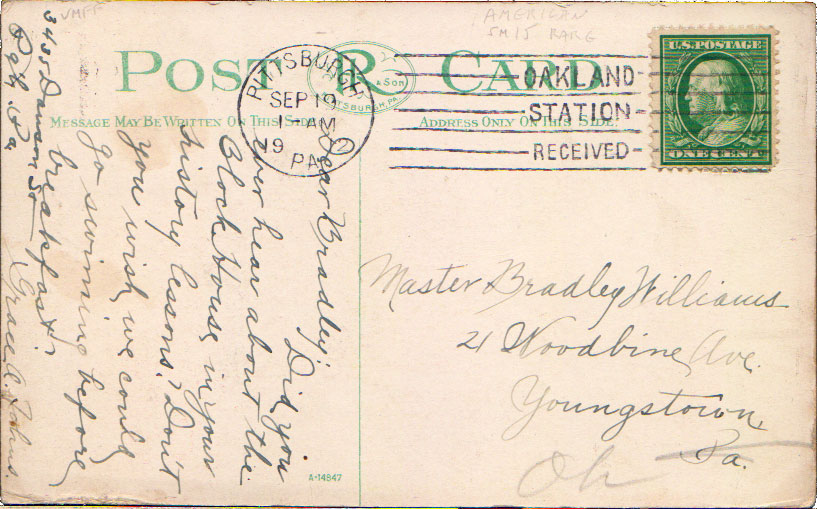 VMFF
AMERICAN
5M15 RARE
POST CARD
R & SON
PITTSBURGH, PA.
MESSAGE MAY BE WRITTEN ON THIS SIDE
ADDRESS ONLY ON THIS SIDE
PITTSBURGH
SEP 19
1- AM
19
PA.
2
OAKLAND
STATION
RECEIVED
U.S. POSTAGE
ONE CENT
Dear Bradley:
Did you
ever hear about the
Block House in your
history lessons? Don't
you wish we could
go swiming before
breakfast?
Grace A. Johns.
3435 Dawson St
Pgh. Pa
Master Bradley Williams
21 Woodbine Ave.
Youngstown,
Pa.
Oh
A-14847